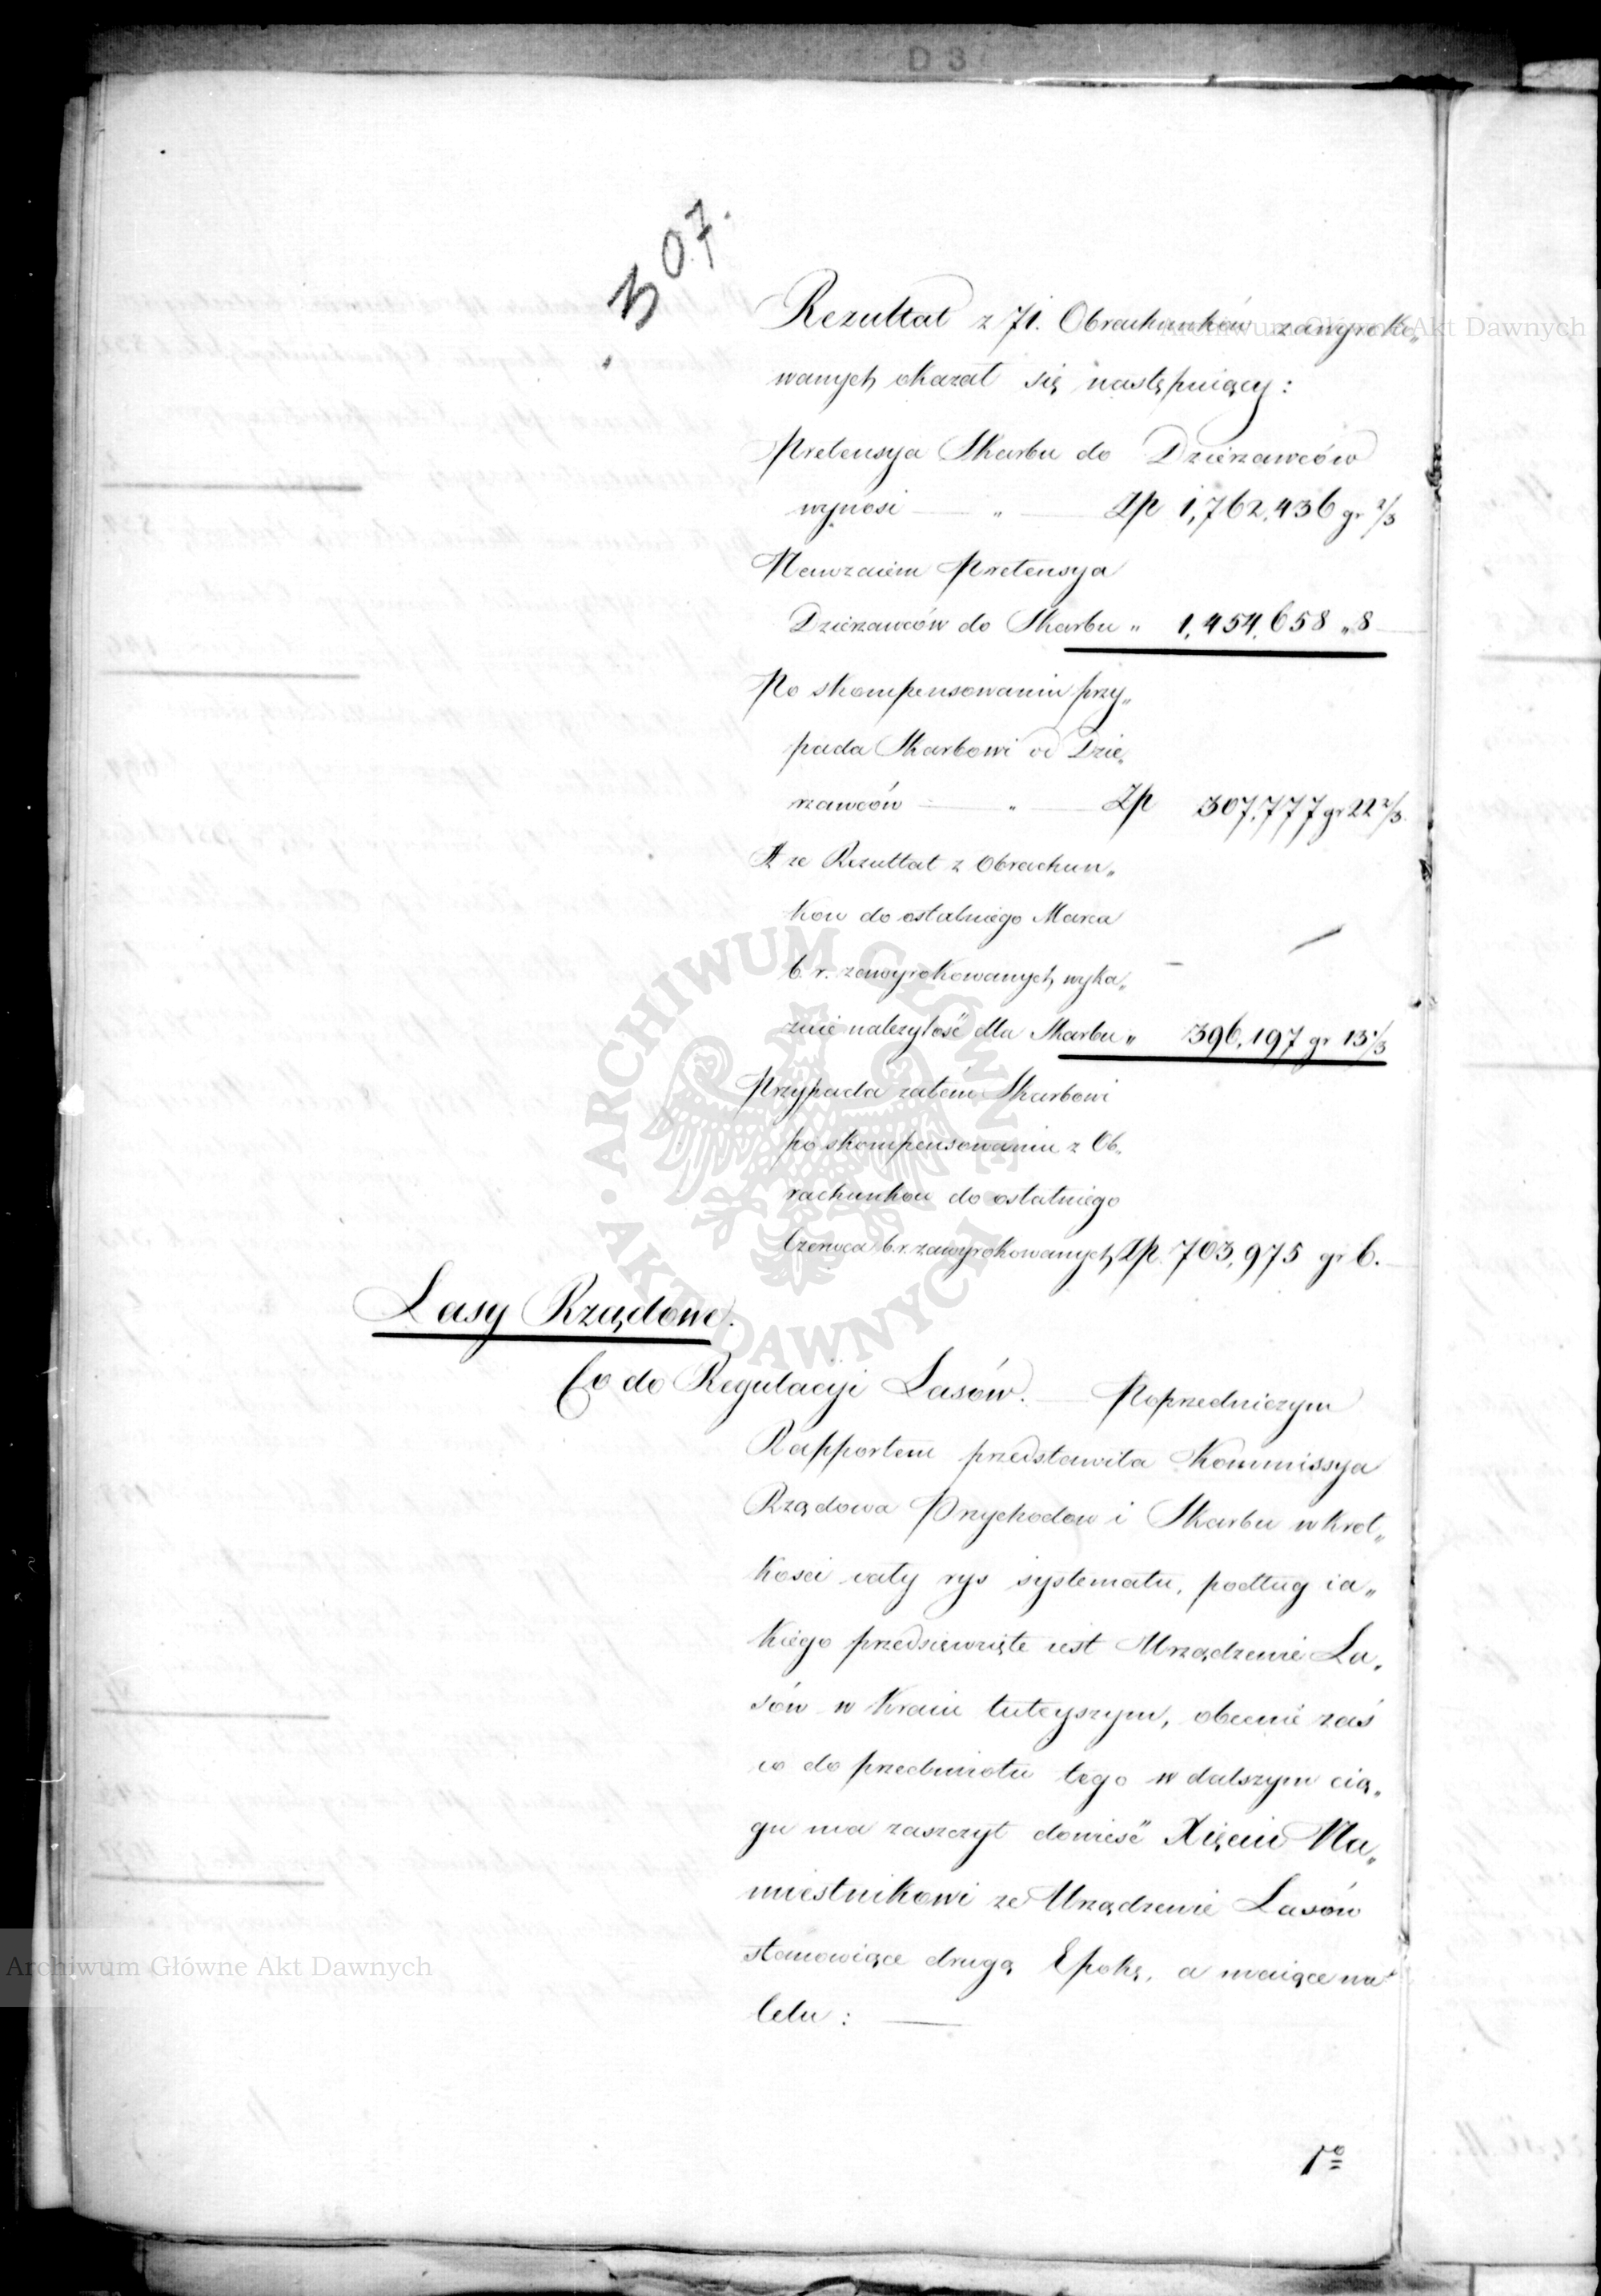 D 3
307.
Rezultat z 71. Obrachunków zawyroko„
wanych okazał się następuiący:
Pretensya Skarbu do Dzierzawców
wynosi — „ — Zp 1,762,436 gr 2/3
Nawzaiem Pretensya
Dzierzawców do Skarbu „ 1,454,658 „ 8
Po skompensowaniu przy„
pada Skarbowi od Dzie„
rzawców — „ — Zp 307,777 gr 22 2/3.
A ze Rezultat z Obrachun„
kow do ostatniego Marca
b. r. zawyrokowanych, wyka„
zuie nalezytość dla Skarbu „ 396,197 gr 13 1/3
Przypada zatém Skarbowi
po skompensowaniu z Ob„
rachunkow do ostatniego
Czerwca b. r. zawyrokowanych, Zp. 703,975 gr 6.
Lasy Rządowe.
Co do Regulacyi Lasów. — Poprzedniczym
Rapportem przedstawiła Kommissya
Rządowa Przychodow i Skarbu w krot„
kosci cały rys systematu, podług ia„
kiego przedsięwzięte iest Urządzenie La„
sów w Kraiu tuteyszym, obecnie zaś
co do przedmiotu tego w dalszym cią„
gu ma zaszczyt donieść Xięciu Na„
miestnikowi ze Urządzenie Lasów
stanowiące drugą Epokę, a maiące na
Celu : —
1º
Archiwum Główne Akt Dawnych
Archiwum Główne Akt Dawnych
ARCHIWUM GŁÓWNE · AKT DAWNYCH ·